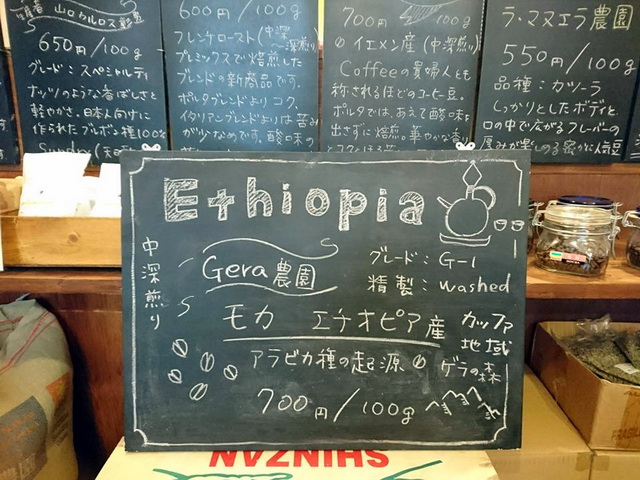 山ロカルロス農園
650円/100g
グレード:スペシャルティ
ナッツのような香ばしさと
軽やかさ。日本人向けに
作られたブルボン種100%
600円/100g
フレンチロースト(中深
深煎り)
プレミックスで焙煎した
ブレンドの新商品です。
ポルタブレンドよりコク、
イタリアンブレンドよりは苦み
がツメなめです。酸味の
700円/100g
イエメン産(中深煎り)
Coffeeの貴婦人とも
称されるほどのコーヒー豆。
ポルタでは、あえて酸味を
出さずに焙煎。華やかな香り
ラ・マヌエラ農園
550円/100g
品種:カツーラ
しっかりとしたボディと
口の中で広がるフレーバーの
厚みが楽しめる
Ethiopia
中深煎り
Gera農園
グレード:G-1
精製:washed
モカ エチオピア産
カッファ
地域
アラビカ種の起源の
ゲラの森
700円/100g
SHINZAN